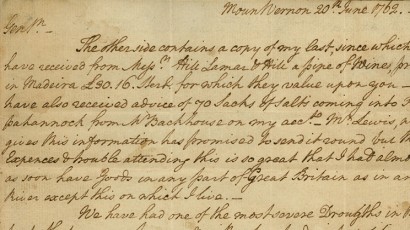 Moun Vernon 20th June 1762.
Gentn
The other side contains a copy of my last, since which
have received from Messrs Hill Lamar & Hill a pipe of Wines, pr
in Madeira £30.16. Sterl for which they value upon you—
have also received advice of 70 Sacks of Salts coming into
pahannock from Mr Backhouse on my acct. Mr Lewis,
gives this information has promised to send it round but th
Expences & trouble attending this is so great that I had almo
as soon have Goods in any part of Great Britain as in an
River except this on which I live.—
We have had one of the most severe Drougths in th